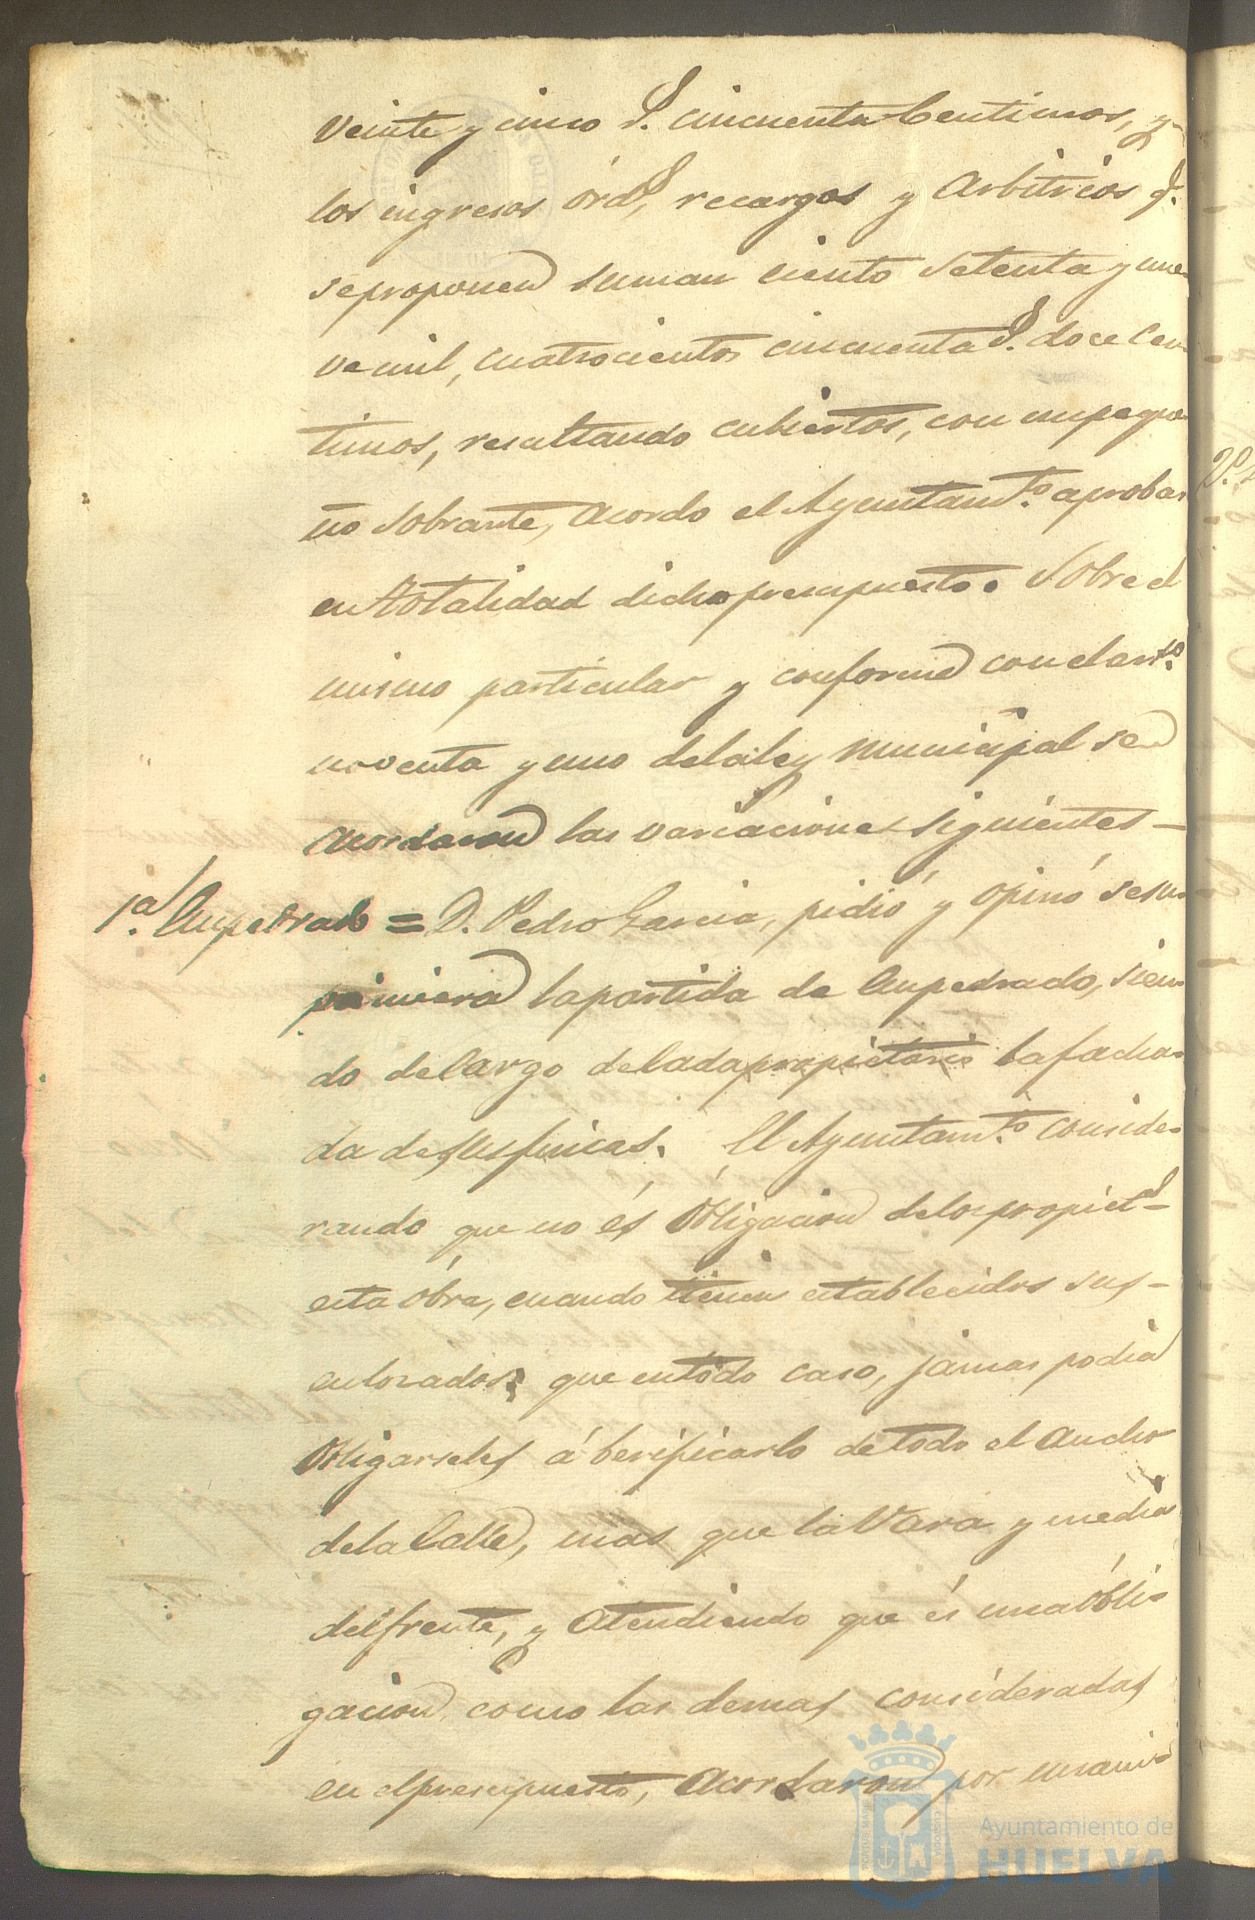 veinte y cinco P. cincuenta Centimos, y
los ingresos órd, recargos y Arbitrios q.
se proponen suman ciento setenta y nue
ve mil, cuatrocientos cincuenta P. doce Cen
timos, resultando cubiertos, con un peque
ño sobrante, acordo el Ayuntam.to aprobar
en totalidad dicho presupuesto. Sobre el
mismo particular y conforme con el art.o
noventa y uno de la ley municipal se
acordaron las variaciones siguientes —
1.a Empedrado = D. Pedro Garcia, pidió y opinó se su
primiera la partida de Empedrado, sien
do de Cargo de Cada propietario la facha
da de sus fincas. El Ayuntam.to conside
rando que no és Obligacion de los propiet.s
esta óbra, cuando tienen establecidos sus
enlozados; que en todo caso, jamas podia
Obligarseles á berificarlo de todo el ancho
de la Calle, mas que la Vara y media
del frente, y atendiendo que és una óbli
gacion como las demas consideradas
en el presupuesto, acordaron por unani
Ayuntamiento de
HUELVA